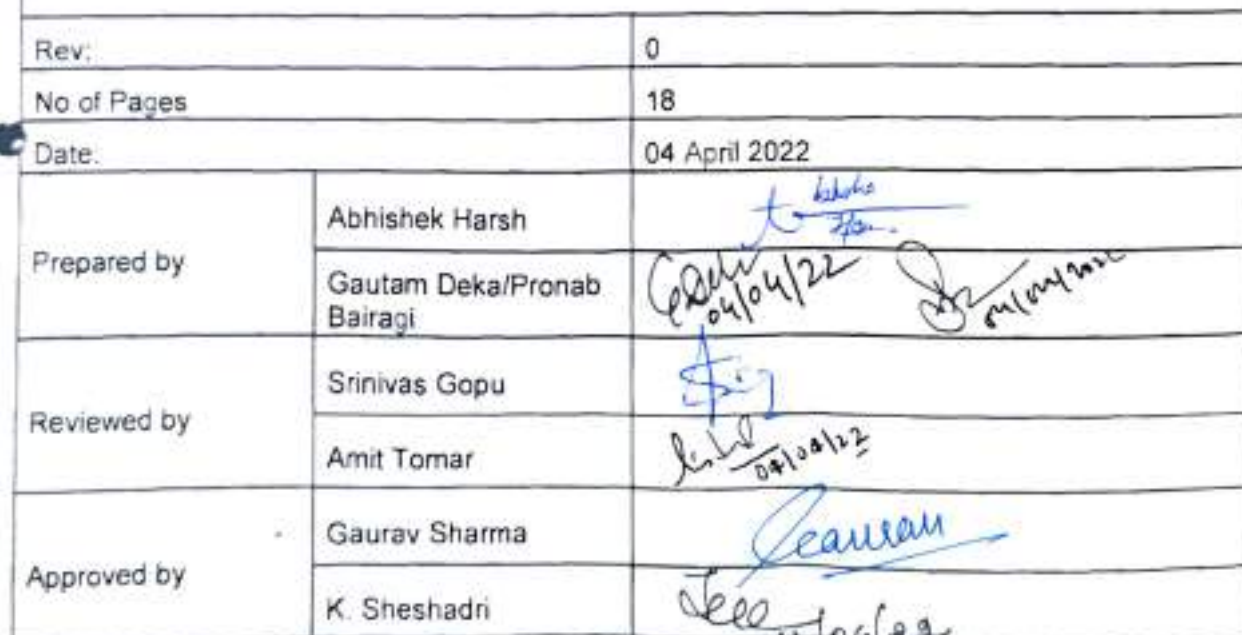 Rev: 0
No of Pages 18
Date: 04 April 2022
Prepared by
Abhishek Harsh
Gautam Deka/Pronab
Bairagi
04/04/22 04/04/2022
Reviewed by
Srinivas Gopu
Amit Tomar
04/04/22
Approved by
Gaurav Sharma
Gaurav
K. Sheshadri